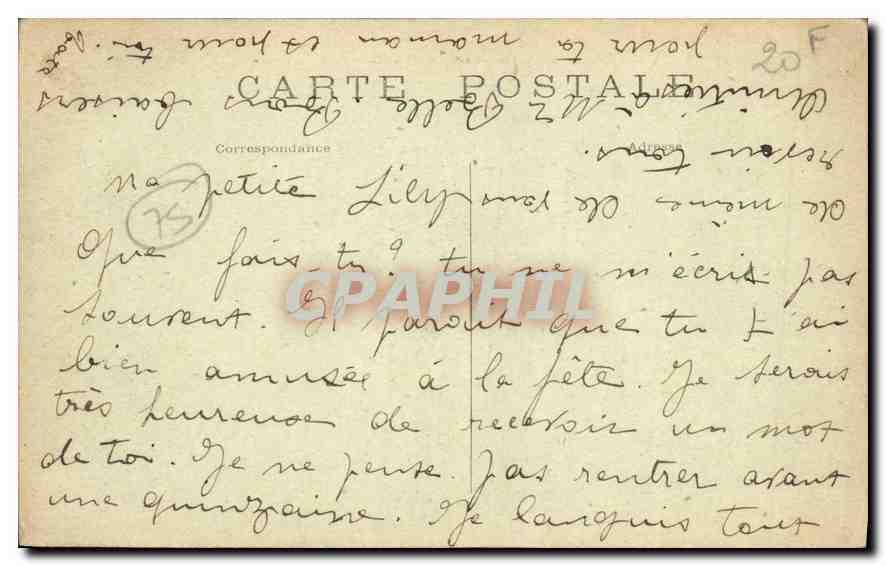 20F
CARTE POSTALE
Correspondance
Adresse
75
Ma petite Lily
Que fais-tu? tu ne m'écris pas
souvent. Il parait que tu t'ai
bien amusée à la fête. Je serais
très heureuse de recevoir un mot
de toi. Je ne pense pas rentrer avant
une quinzaine. Je languis tout
de même de vous
revoir tous.
Amitiés à Mlle Bons baisers
pour ta maman et pour toi.
CPAPHIL